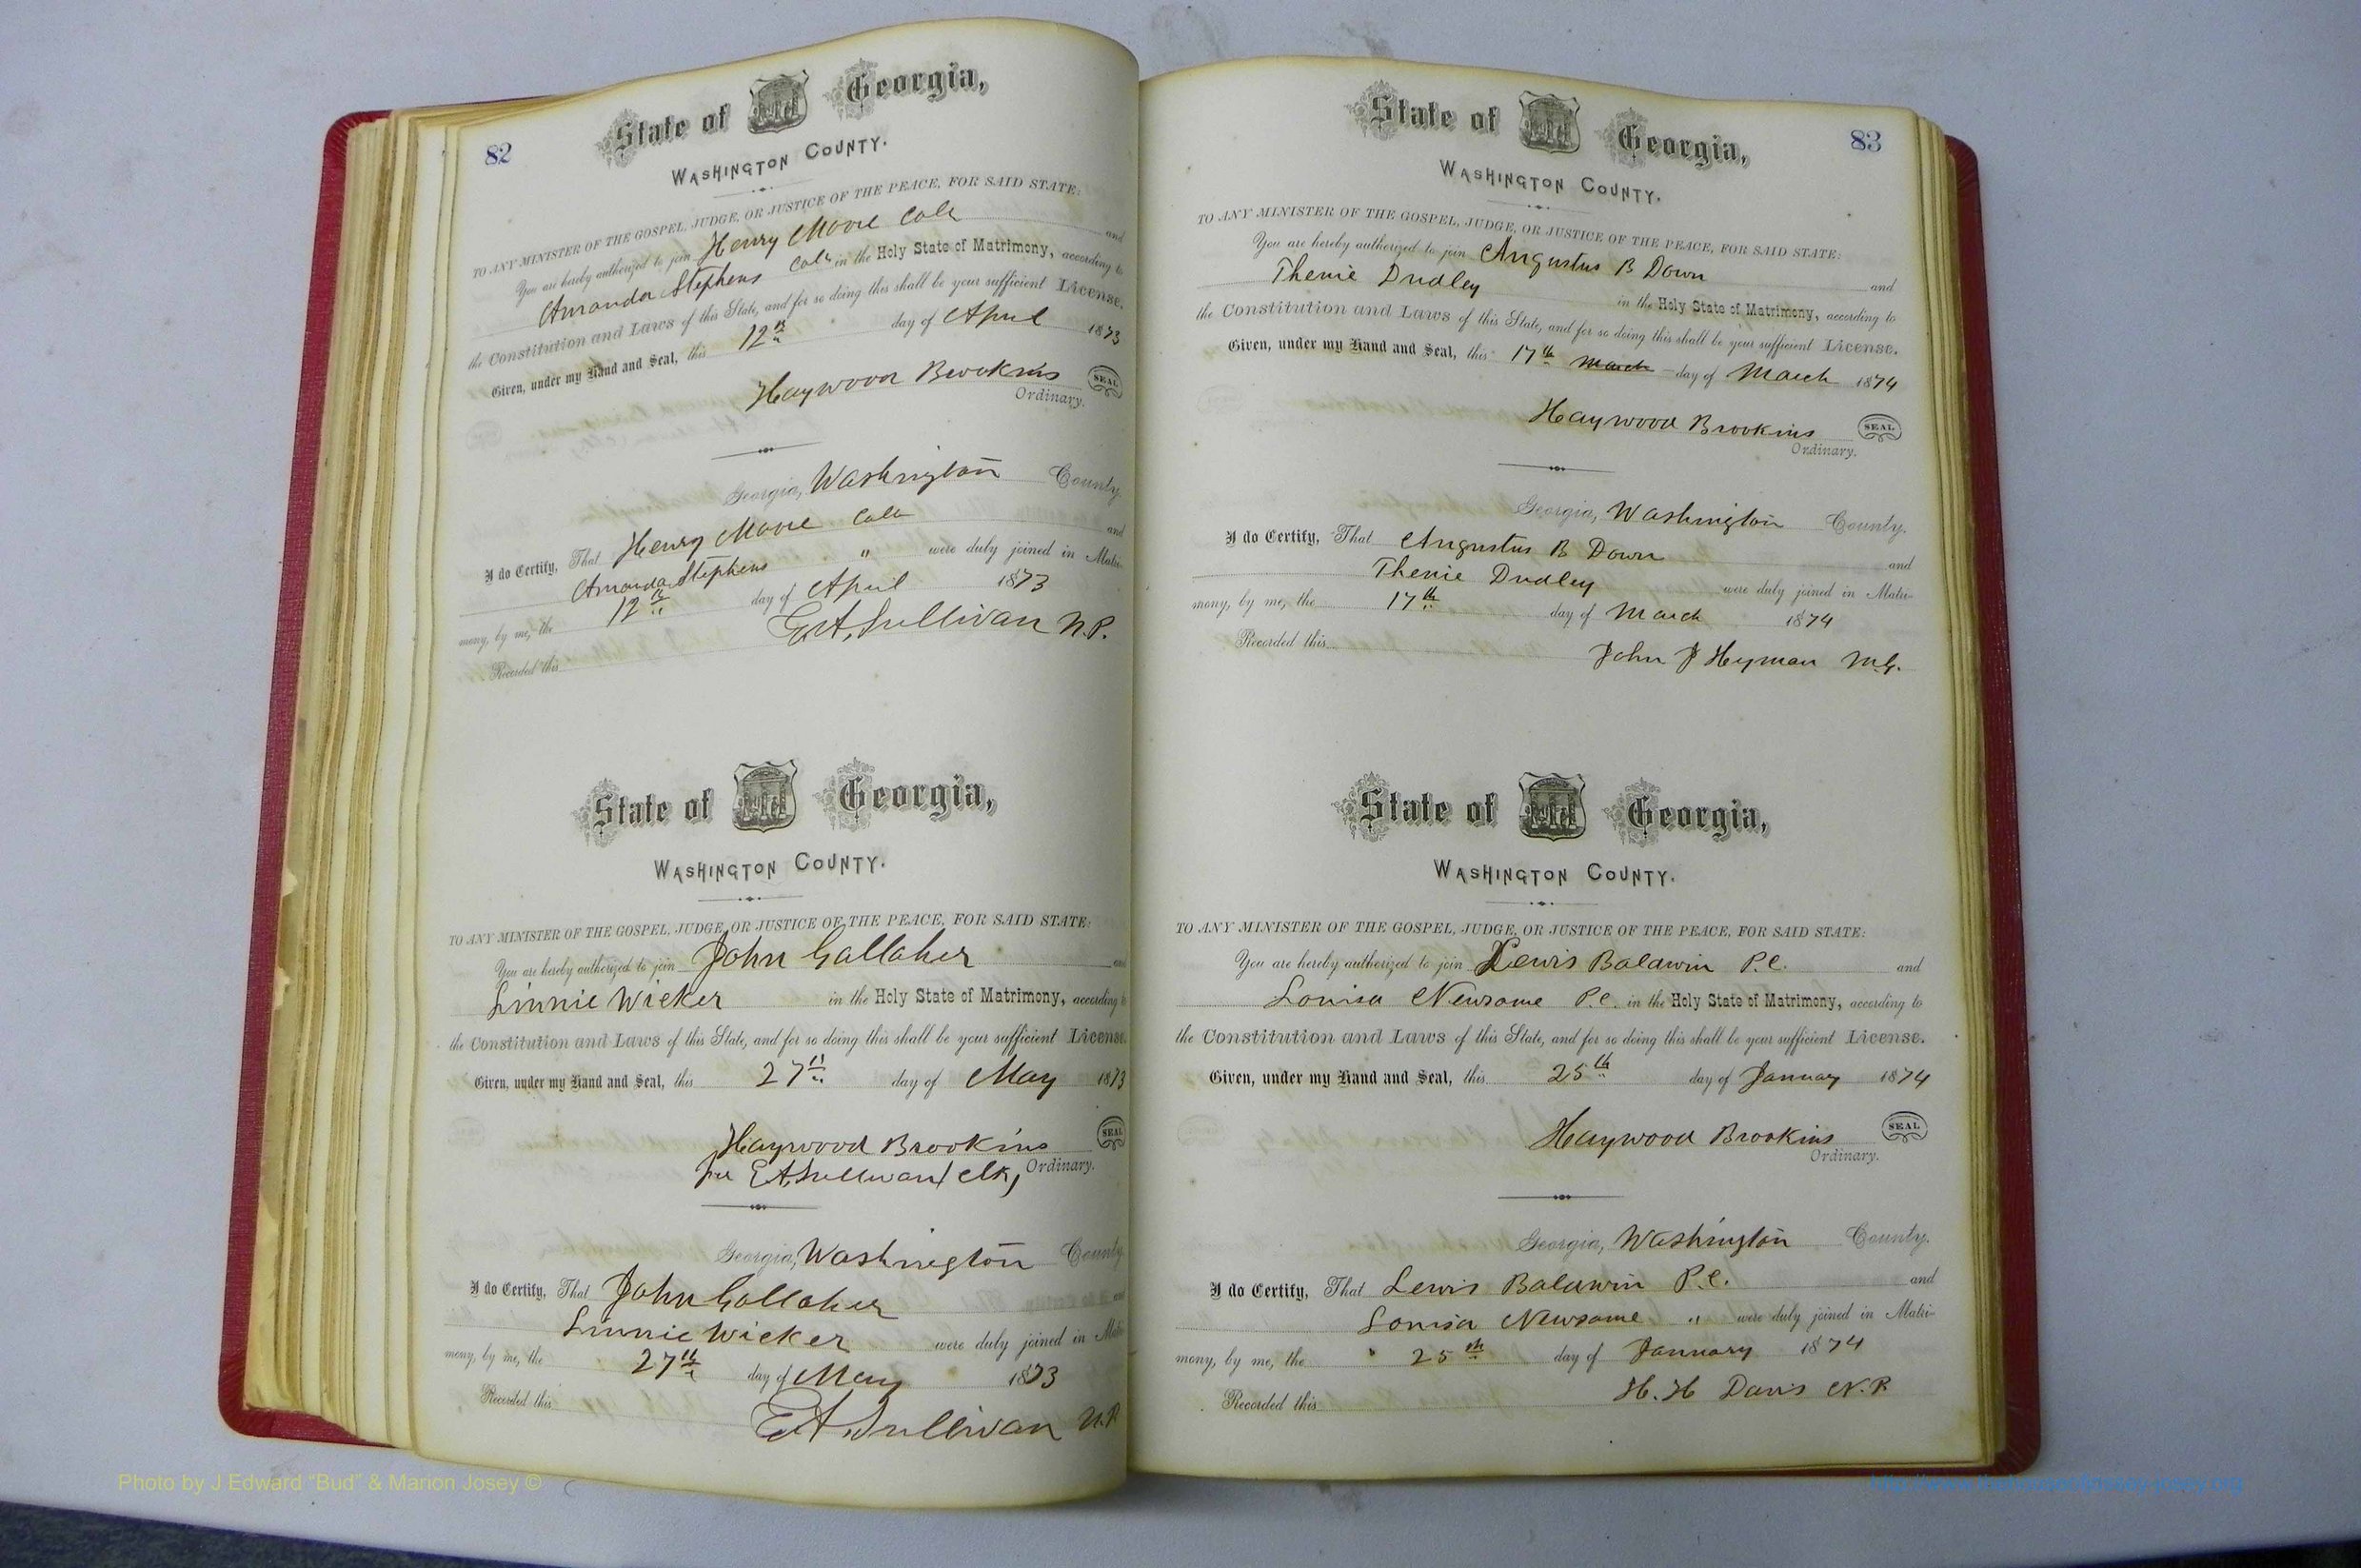 82
State of Georgia,
WASHINGTON COUNTY.
TO ANY MINISTER OF THE GOSPEL, JUDGE, OR JUSTICE OF THE PEACE, FOR SAID STATE:
You are hereby authorized to join Henry Moore Cold and
Amanda Stephens Cold in the Holy State of Matrimony, according to
the Constitution and Laws of this State, and for so doing this shall be your sufficient License.
Given, under my Hand and Seal, this 12th day of April 1873
Haywood Brookins SEAL
Ordinary.
Georgia, Washington County.
I do Certify, That Henry Moore Cold and
Amanda Stephens " were duly joined in Matri-
mony, by me, the 12th day of April 1873
Recorded this E A Sullivan N.P.
State of Georgia,
WASHINGTON COUNTY.
TO ANY MINISTER OF THE GOSPEL, JUDGE, OR JUSTICE OF THE PEACE, FOR SAID STATE:
You are hereby authorized to join John Gallaher and
Linnie Wicker in the Holy State of Matrimony, according to
the Constitution and Laws of this State, and for so doing this shall be your sufficient License.
Given, under my Hand and Seal, this 27th day of May 1873
Haywood Brookins SEAL
per E A Sullivan clk, Ordinary.
Georgia, Washington County.
I do Certify, That John Gallaher and
Linnie Wicker were duly joined in Matri-
mony, by me, the 27th day of May 1873
Recorded this E A Sullivan N.P.
83
State of Georgia,
WASHINGTON COUNTY.
TO ANY MINISTER OF THE GOSPEL, JUDGE, OR JUSTICE OF THE PEACE, FOR SAID STATE:
You are hereby authorized to join Augustus B Down
Thenie Dudley and
in the Holy State of Matrimony, according to
the Constitution and Laws of this State, and for so doing this shall be your sufficient License.
Given, under my Hand and Seal, this 17th March day of March 1874
Haywood Brookins SEAL
Ordinary.
Georgia, Washington County.
I do Certify, That Augustus B Down and
Thenie Dudley were duly joined in Matri-
mony, by me, the 17th day of March 1874
Recorded this John J Hyman M.G.
State of Georgia,
WASHINGTON COUNTY.
TO ANY MINISTER OF THE GOSPEL, JUDGE, OR JUSTICE OF THE PEACE, FOR SAID STATE:
You are hereby authorized to join Lewis Baldwin P.C. and
Louisa Newsome P.C. in the Holy State of Matrimony, according to
the Constitution and Laws of this State, and for so doing this shall be your sufficient License.
Given, under my Hand and Seal, this 25th day of January 1874
Haywood Brookins SEAL
Ordinary.
Georgia, Washington County.
I do Certify, That Lewis Baldwin P.C. and
Louisa Newsome " were duly joined in Matri-
mony, by me, the 25th day of January 1874
Recorded this H. H Davis N.P.
Photo by J Edward “Bud” & Marion Josey ©